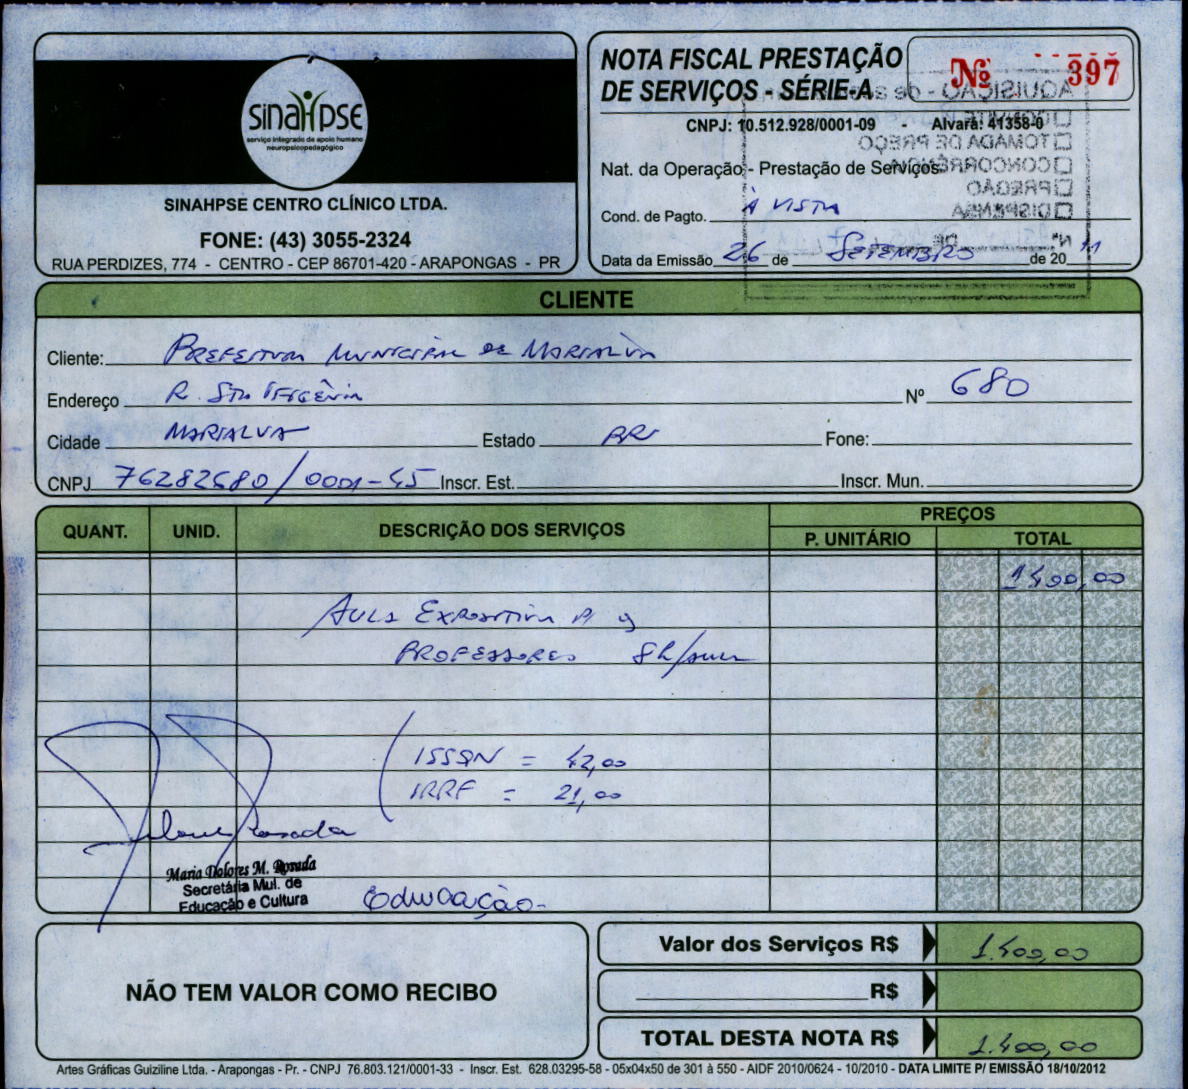 sinaHpse
serviço integrado de apoio humano
neuropsicopedagógico
SINAHPSE CENTRO CLÍNICO LTDA.
FONE: (43) 3055-2324
RUA PERDIZES, 774 - CENTRO - CEP 86701-420 - ARAPONGAS - PR
NOTA FISCAL PRESTAÇÃO
DE SERVIÇOS - SÉRIE-A
Nº 397
CNPJ: 10.512.928/0001-09 - Alvará: 41358-0
Nat. da Operação - Prestação de Serviços
Cond. de Pagto. À VISTA
Data da Emissão 26 de SETEMBRO de 20 11
AQUISIÇÃO - de
TOMADA DE PREÇO
CONCORRÊNCIA
PREGÃO
DISPENSA
Nº DE
CLIENTE
Cliente: PREFEITURA MUNICIPAL DE MARIALVA
Endereço R. Sta EFIGÊNIA Nº 680
Cidade MARIALVA Estado PR Fone:
CNPJ 76282680/0001-45 Inscr. Est. Inscr. Mun.
QUANT. UNID. DESCRIÇÃO DOS SERVIÇOS PREÇOS
P. UNITÁRIO TOTAL
1400,00
AULA EXPOSITIVA P/
PROFESSORES 8h/AULA
ISSQN = 42,00
IRRF = 21,00
Maria Dolores M. Rosada
Secretária Mul. de
Educação e Cultura
EDUCAÇÃO-
NÃO TEM VALOR COMO RECIBO
Valor dos Serviços R$ 1.400,00
R$
TOTAL DESTA NOTA R$ 1.400,00
Artes Gráficas Guiziline Ltda. - Arapongas - Pr. - CNPJ 76.803.121/0001-33 - Inscr. Est. 628.03295-58 - 05x04x50 de 301 à 550 - AIDF 2010/0624 - 10/2010 - DATA LIMITE P/ EMISSÃO 18/10/2012